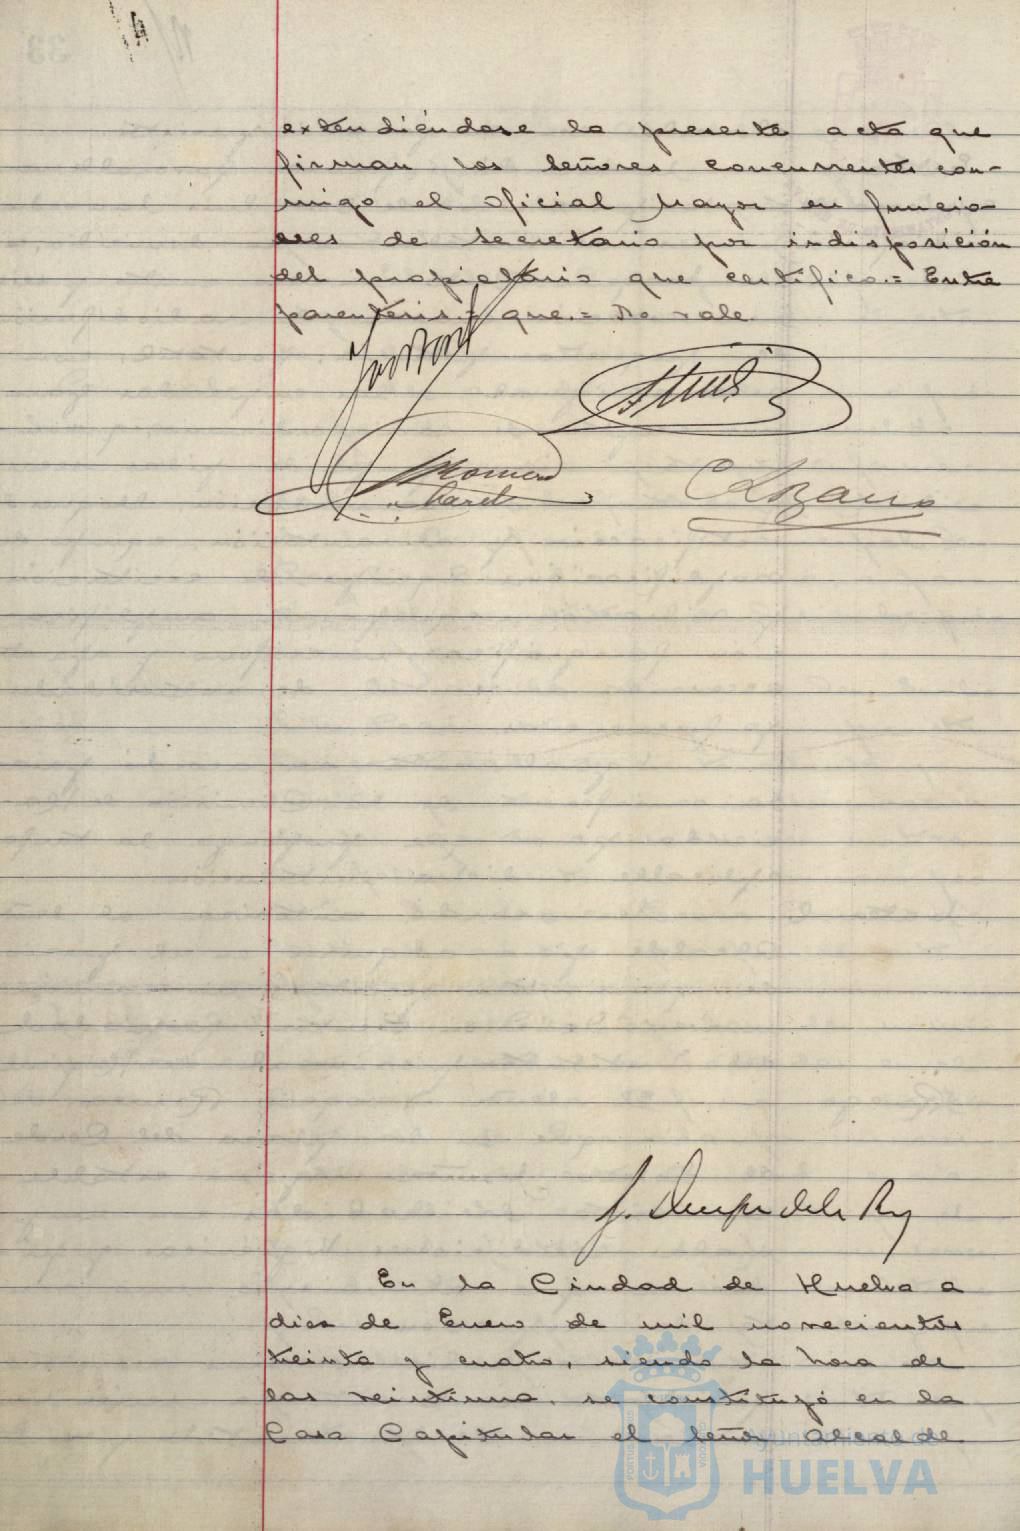 extendiéndose la presente acta que
firman los señores concurrentes con-
migo el Oficial Mayor en funcio-
nes de Secretario por indisposición
del propietario que certifico.= Entre
parentesis.= que.= No vale
Romero
C Lozano
En la Ciudad de Huelva a
diez de Enero de mil novecientos
treinta y cuatro, siendo la hora de
las veintiuna, se constituyó en la
Casa Capitular el Señor Alcalde
HUELVA